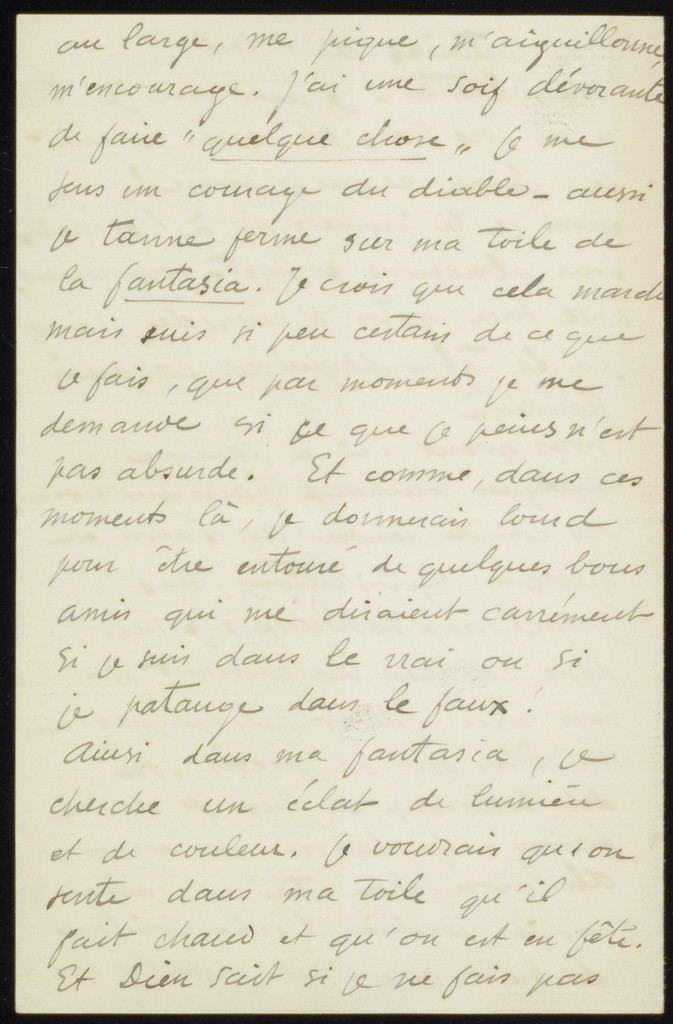 au large, me pique, m'aiguillonne,
m'encourage. J'ai une soif dévorante
de faire "quelque chose" Je me
sens un courage du diable - aussi
je tanne ferme sur ma toile de
la fantasia. Je crois que cela marche
mais suis si peu certain de ce que
je fais, que par moments je me
demande si ce que je peins n'est
pas absurde. Et comme, dans ces
moments là, je donnerais lourd
pour être entouré de quelques bons
amis qui me diraient carrément
si je suis dans le vrai ou si
je patauge dans le faux !
Ainsi dans ma fantasia, je
cherche un éclat de lumière
et de couleur. Je voudrais qu'on
sente dans ma toile qu'il
fait chaud et qu'on est en fête.
Et Dieu sait si je ne fais pas